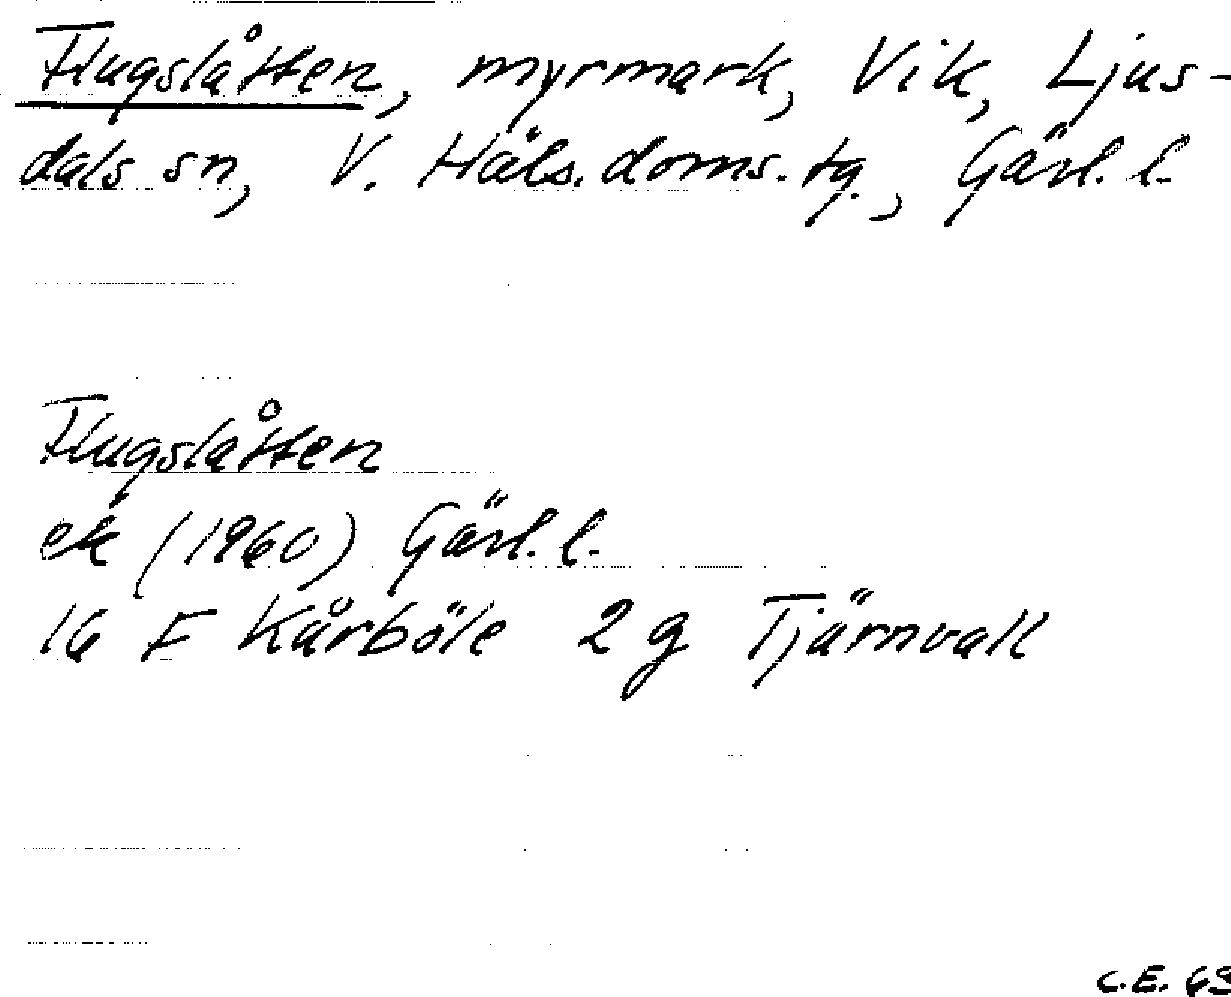 Flugslåtten, myrmark, Vik, Ljus-
dals sn, V. Häls. doms. tg., Gävl. l.
Flugslåtten
ek (1960) Gävl. l.
16 F Kårböle 2 g Tjärnvall
C.E. 69